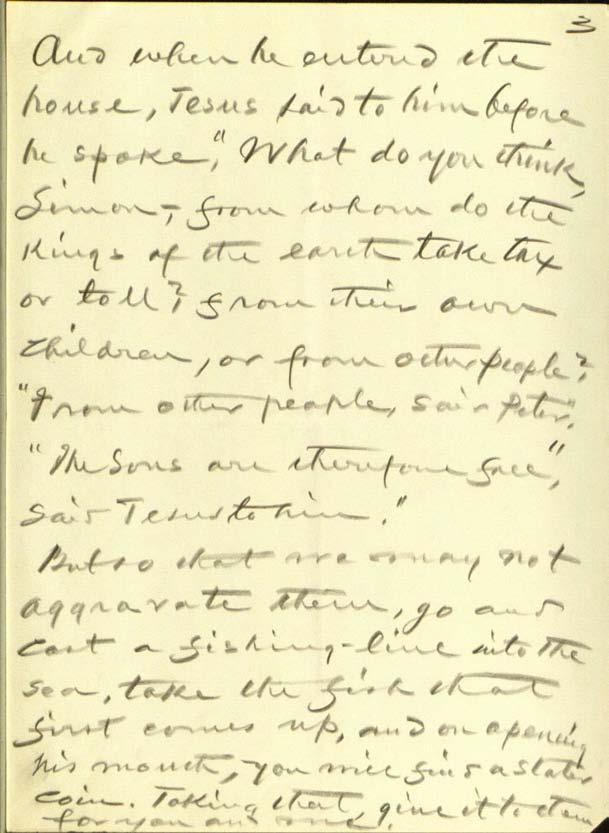 3
And when he entered the
house, Jesus said to him before
he spoke, "What do you think,
Simon, from whom do the
Kings of the earth take tax
or toll? from their own
children, or from other people?
"From other people, said Peter".
"The Sons are therefore free",
said Jesus to him."
But so that we may not
aggravate them, go and
cast a fishing-line into the
sea, take the fish that
first comes up, and on opening
his mouth, you will find a stater
coin. Taking that, give it to them
for you and me.